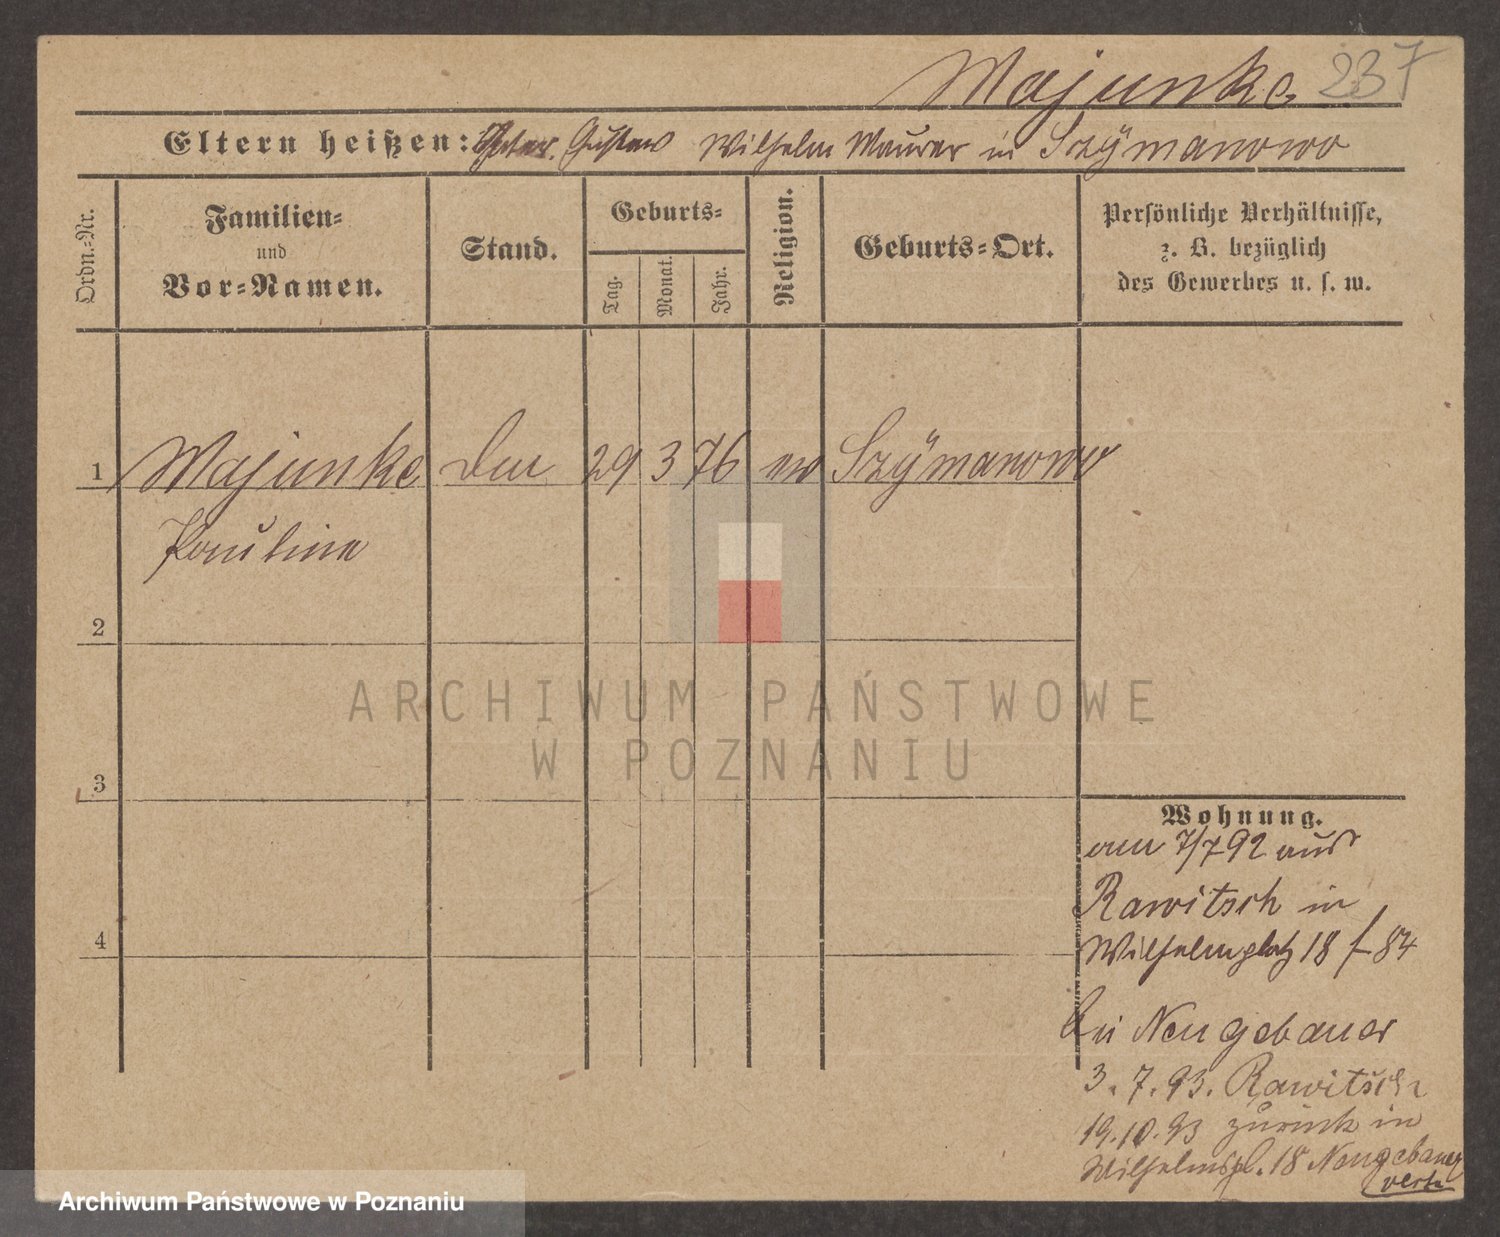 Majunke 237
Eltern heißen: Vater. Gustav Wilhelm Maurer in Szÿmanowo
Ordn.-Nr.
Familien-
und
Vor-Namen.
Stand.
Geburts-
Tag.
Monat.
Jahr.
Religion.
Geburts-Ort.
Persönliche Verhältnisse,
z. B. bezüglich
des Gewerbes u. s. w.
1 Majunke 29 3 76 ev Szÿmanowo
Pauline
2
3
4
ARCHIWUM PAŃSTWOWE
W POZNANIU
Wohnung.
am 7/7 92 aus
Rawitsch in
Wilhelmplatz 18 f 84
bei Neugebauer
3. 7. 93. Rawitsch
19.10.93 zurück in
Wilhelmspl. 18 Neugebauer
verte
Archiwum Państwowe w Poznaniu